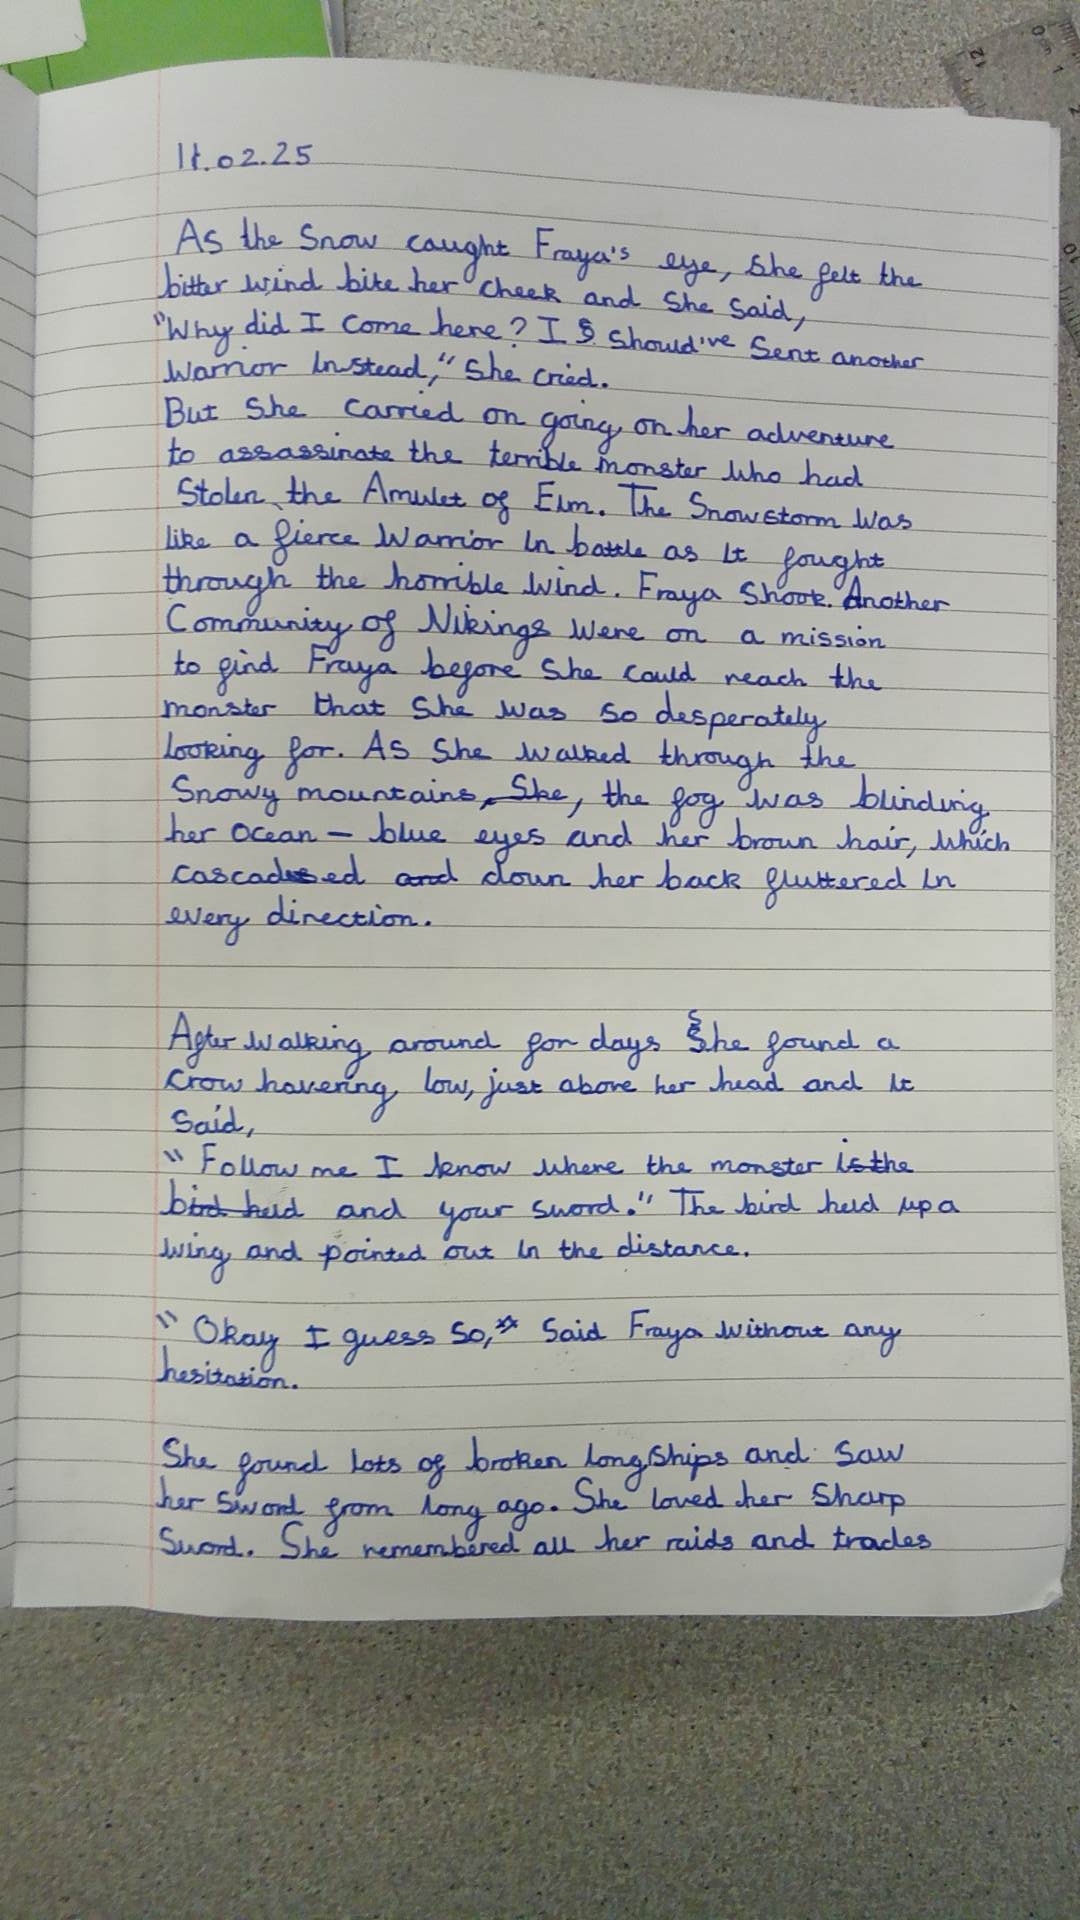 11.02.25
As the Snow caught Fraya's eye, She felt the
bitter wind bite her cheek and She Said,
"Why did I come here? I S Should've Sent another
Warrior Instead," She cried.
But She carried on going on her adventure
to assassinate the terrible monster who had
Stolen the Amulet of Elm. The Snowstorm was
like a fierce Warrior In battle as It fought
through the horrible wind. Fraya Shook. Another
Community of Vikings were on a mission
to find Fraya before She could reach the
monster that She was so desperately
looking for. As She walked through the
Snowy mountains, She, the fog was blinding
her ocean - blue eyes and her brown hair, which
cascaded and down her back fluttered In
every direction.
After walking around for days She found a
Crow hovering low, just above her head and It
Said,
"Follow me I know where the monster is the
bird held and your sword." The bird held up a
wing and pointed out In the distance.
"Okay I guess So," Said Fraya without any
hesitation.
She found lots of broken longShips and Saw
her Sword from long ago. She loved her Sharp
Sword. She remembered all her raids and trades
12
0
cm
1
2
10